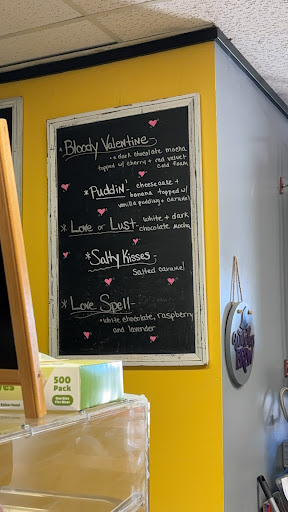 * Bloody Valentine -
• a dark chocolate mocha
topped w/ cherry + red velvet
cold foam
* Puddin' - cheesecake +
banana topped w/
vanilla pudding + caramel
* Love or Lust - white + dark
chocolate mocha
* Salty Kisses :
salted caramel
* Love Spell -
• white chocolate, raspberry
and lavender
500
Pack